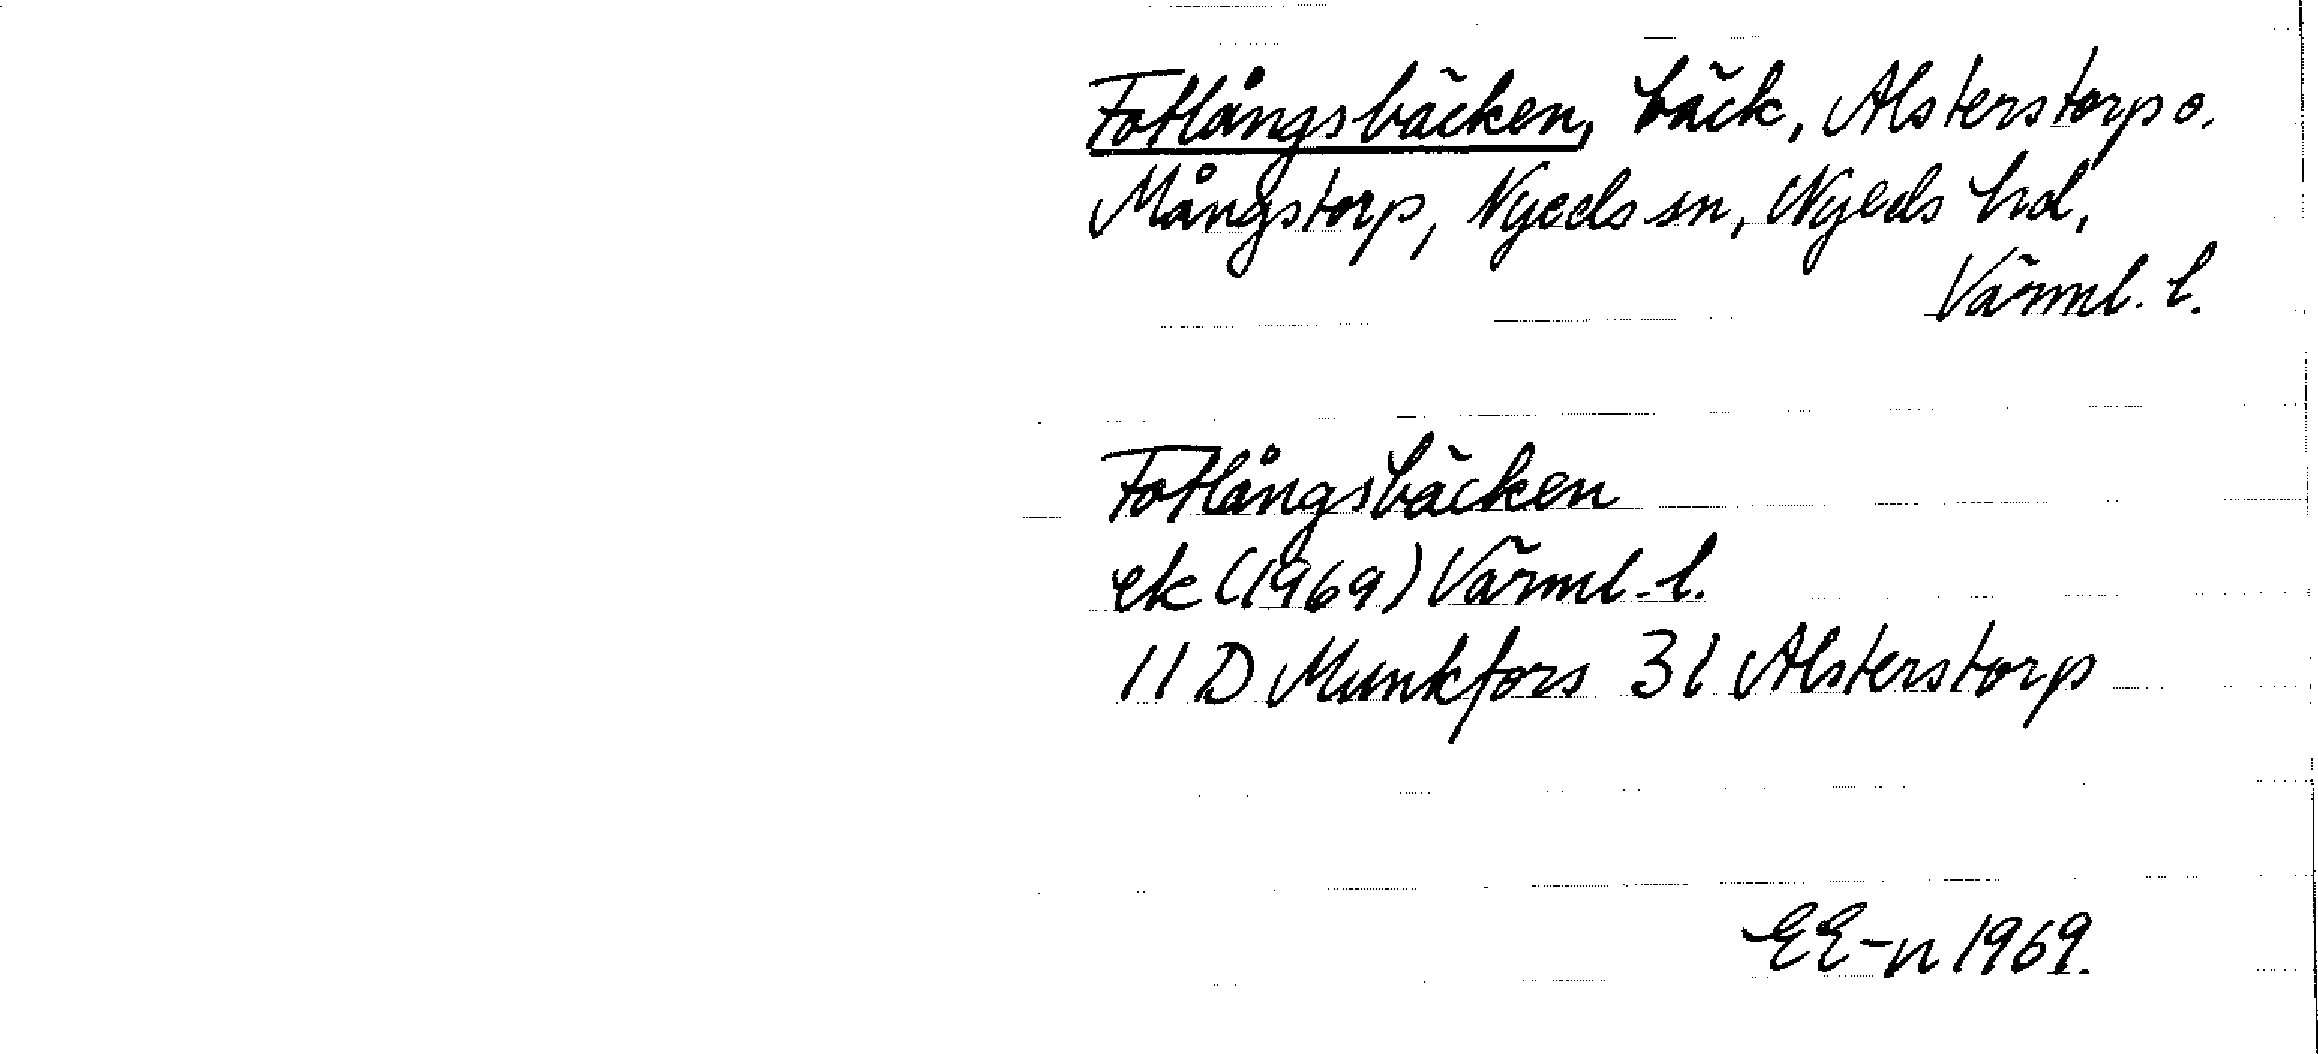 Fotlångsbäcken, bäck, Alsterstorp o.
Mångstorp, Nyeds sn, Nyeds hd,
Värml. l.
Fotlångsbäcken
ek (1969) Värml. l.
11 D Munkfors 3 i Alsterstorp
EE-n 1969.